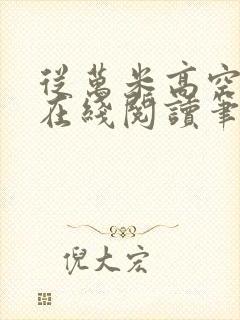 從萬米高空
在綫閱讀筆
倪大宏